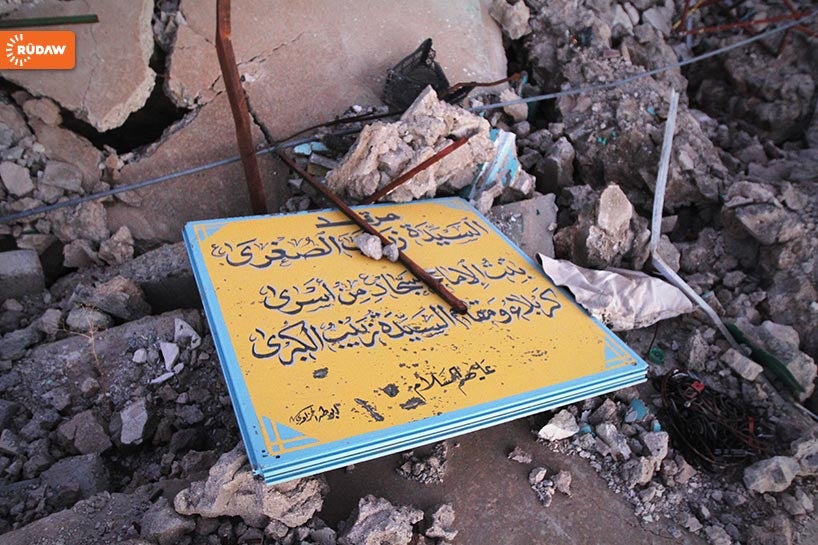 RÛDAW
مرقد
السيدة زينب الصغرى (ع)
بنت الامام السجاد من أسرى
كربلاء ومقام السيدة زينب الكبرى
عليهم السلام